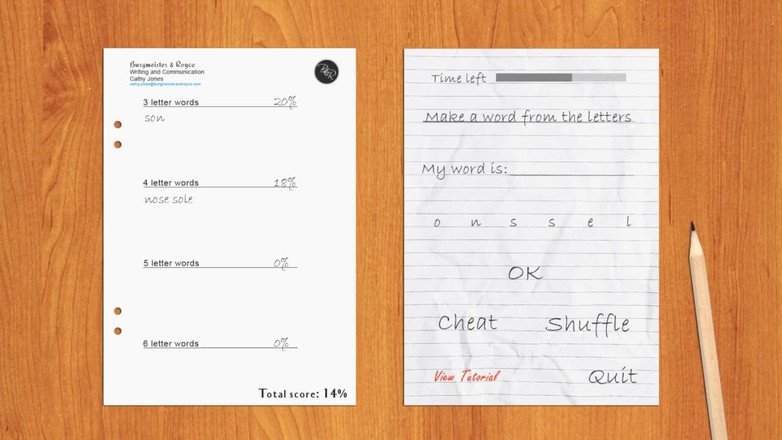 Burgmeister & Royce
Writing and Communication
Cathy Jones
cathy.jones@burgmeisterandroyce.com
B&R
3 letter words 20%
son
4 letter words 18%
nose sole
5 letter words 0%
6 letter words 0%
Total score: 14%
Time left
Make a word from the letters
My word is:
o n s s e l
OK
Cheat Shuffle
View Tutorial Quit